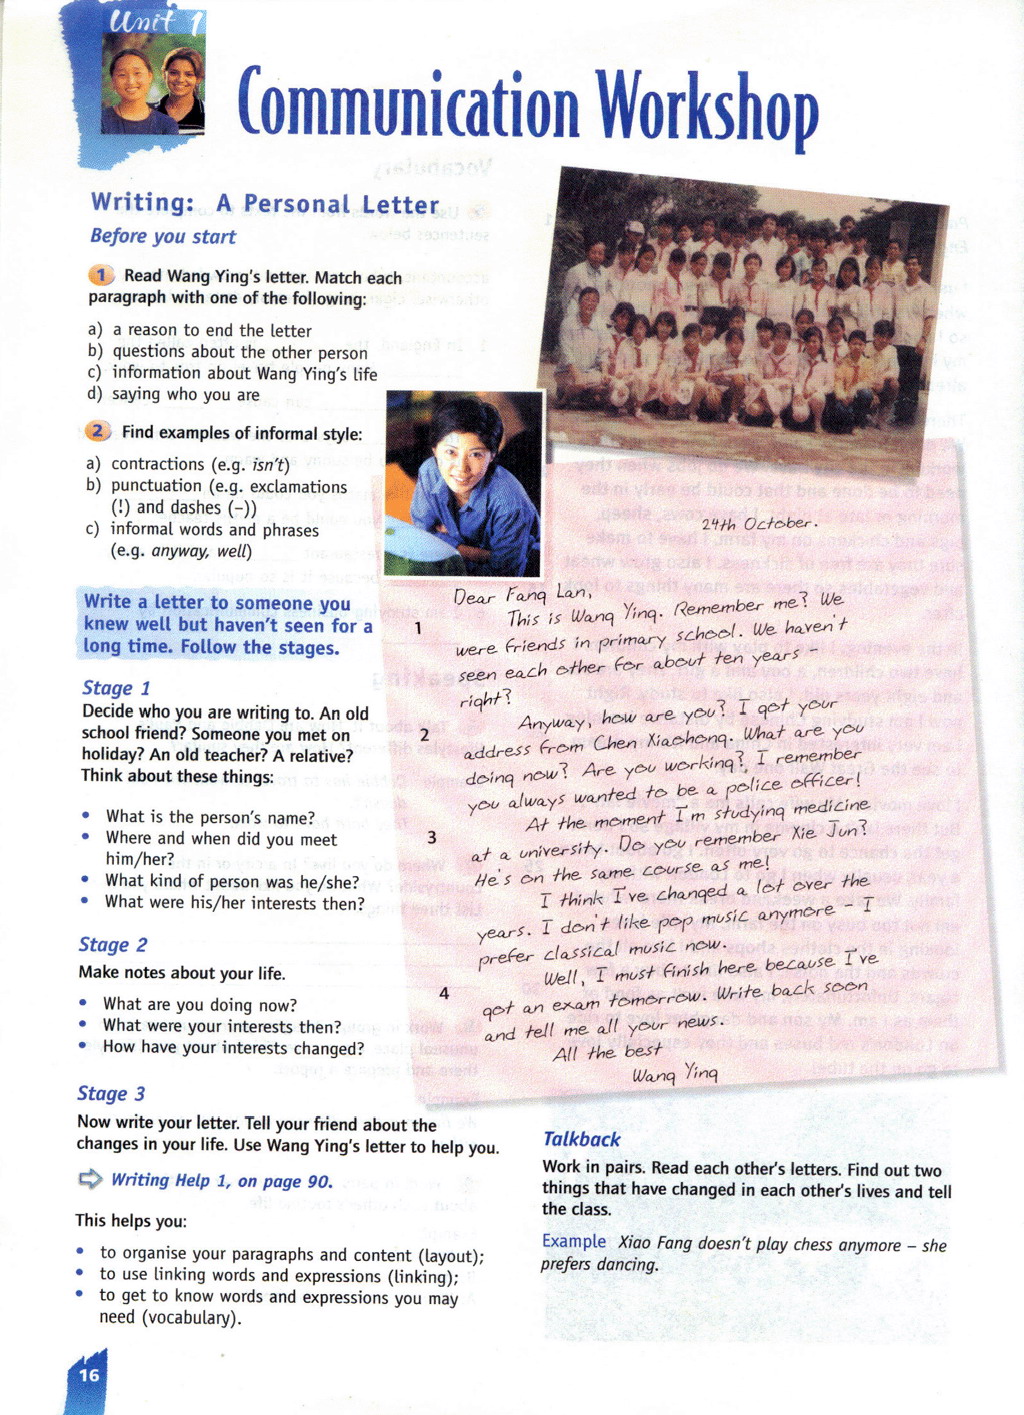 Unit 1
Communication Workshop
Writing: A Personal Letter
Before you start
1 Read Wang Ying's letter. Match each
paragraph with one of the following:
a) a reason to end the letter
b) questions about the other person
c) information about Wang Ying's life
d) saying who you are
2 Find examples of informal style:
a) contractions (e.g. isn't)
b) punctuation (e.g. exclamations
(!) and dashes (–))
c) informal words and phrases
(e.g. anyway, well)
Write a letter to someone you
knew well but haven't seen for a
long time. Follow the stages.
Stage 1
Decide who you are writing to. An old
school friend? Someone you met on
holiday? An old teacher? A relative?
Think about these things:
• What is the person's name?
• Where and when did you meet
him/her?
• What kind of person was he/she?
• What were his/her interests then?
Stage 2
Make notes about your life.
• What are you doing now?
• What were your interests then?
• How have your interests changed?
Stage 3
Now write your letter. Tell your friend about the
changes in your life. Use Wang Ying's letter to help you.
Writing Help 1, on page 90.
This helps you:
• to organise your paragraphs and content (layout);
• to use linking words and expressions (linking);
• to get to know words and expressions you may
need (vocabulary).
24th October.
Dear Fang Lan,
1 This is Wang Ying. Remember me? We
were friends in primary school. We haven't
seen each other for about ten years –
right?
2 Anyway, how are you? I got your
address from Chen Xiaohong. What are you
doing now? Are you working? I remember
you always wanted to be a police officer!
3 At the moment I'm studying medicine
at a university. Do you remember Xie Jun?
He's on the same course as me!
I think I've changed a lot over the
years. I don't like pop music anymore – I
prefer classical music now.
4 Well, I must finish here because I've
got an exam tomorrow. Write back soon
and tell me all your news.
All the best
Wang Ying
Talkback
Work in pairs. Read each other's letters. Find out two
things that have changed in each other's lives and tell
the class.
Example Xiao Fang doesn't play chess anymore – she
prefers dancing.
16